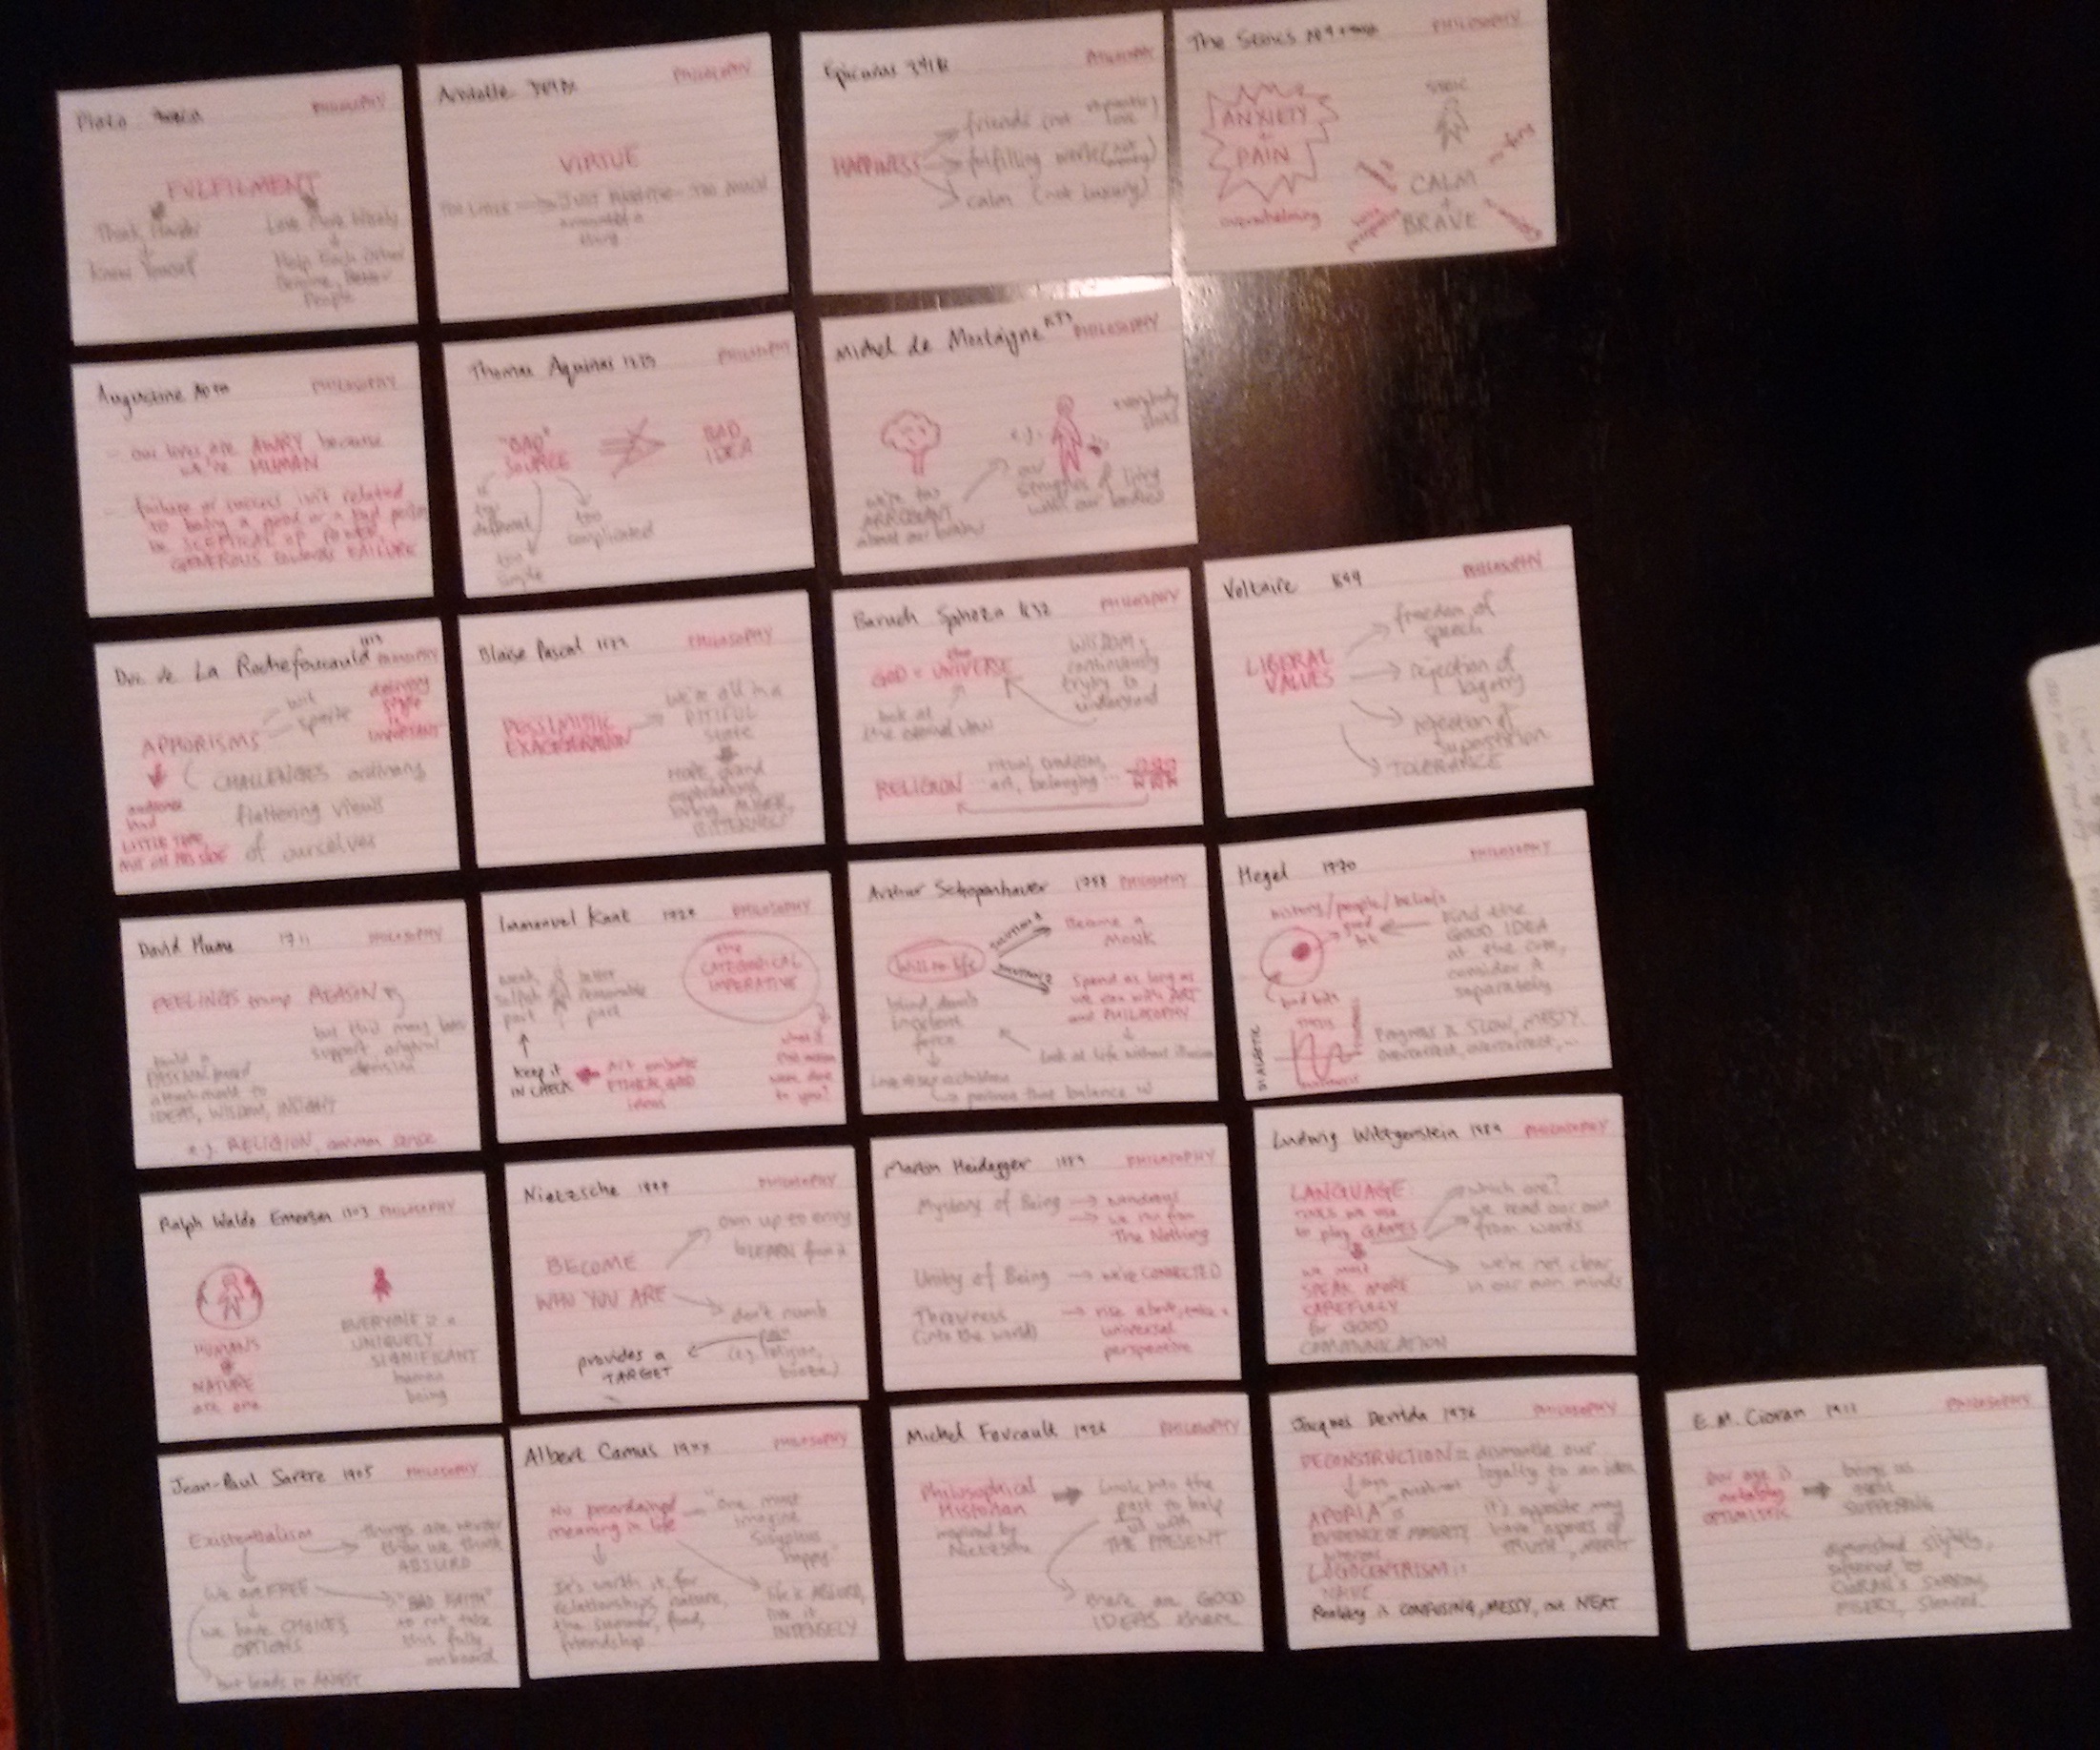 Plato
PHILOSOPHY
FULFILMENT
Think Harder
Know Yourself
Love More Wisely
Help Each Other
Become Better
People
Aristotle
PHILOSOPHY
VIRTUE
TOO LITTLE JUST TOO MUCH
thing
Epicurus 341BC
PHILOSOPHY
HAPPINESS
friends (not romantic love)
fulfilling work (not money)
calm (not luxury)
The Stoics
PHILOSOPHY
ANXIETY
+
PAIN
overwhelming
STOIC
CALM
+
BRAVE
Augustine
PHILOSOPHY
- our lives are AWRY because
we're HUMAN
- failure or success isn't related
to being a good or a bad person
be SCEPTICAL OF POWER,
GENEROUS towards FAILURE
Thomas Aquinas 1225
PHILOSOPHY
"BAD"
SOURCE
BAD
IDEA
too
different
too
simple
too
complicated
Michel de Montaigne
PHILOSOPHY
we're too
ARROGANT
about our brains
e.g.
our
struggles of living
with our bodies
everybody
Duc de La Rochefoucauld 1613
PHILOSOPHY
APHORISMS
wit
delivery
style
is
IMPORTANT
CHALLENGES ordinary
flattering views
of ourselves
audience
had
LITTLE TIME,
NOT ON HIS SIDE
Blaise Pascal 1623
PHILOSOPHY
PESSIMISTIC
EXAGGERATION
we're all in a
PITIFUL
state
HOPE, grand
expectations
bring ANGER,
BITTERNESS
Baruch Spinoza 1632
PHILOSOPHY
GOD = the UNIVERSE
look at
the eternal view
WISDOM:
continuously
trying to
understand
RELIGION
ritual, tradition,
art, belonging ...
Voltaire 1694
PHILOSOPHY
LIBERAL
VALUES
freedom of
speech
rejection of
bigotry
rejection of
superstition
TOLERANCE
David Hume 1711
PHILOSOPHY
FEELINGS trump REASON
but this may
support original
decision
build a
PASSION based
attachment to
IDEAS, WISDOM, INSIGHT
e.g. RELIGION, common sense
Immanuel Kant 1724
PHILOSOPHY
weak,
selfish
part
better
reasonable
part
the
CATEGORICAL
IMPERATIVE
keep it
IN CHECK
Art embodies
ETHICAL, GOOD
ideas
what if
this action
were done
to you?
Arthur Schopenhauer 1788
PHILOSOPHY
Will to life
SOLUTION 1
Become a
MONK
SOLUTION 2
Spend as long as
we can with ART
and PHILOSOPHY
Look at life without illusion
blind, dumb
insistent
force
Love
partner that balance us
Hegel 1770
PHILOSOPHY
history/people/beliefs
good
bit
find the
GOOD IDEA
at the core,
consider it
separately
bad bits
DIALECTIC
Progress is SLOW, MESSY.
overcorrect, overcorrect, ...
Ralph Waldo Emerson 1803
PHILOSOPHY
HUMANS
+
NATURE
are one
EVERYONE is a
UNIQUELY
SIGNIFICANT
human
being
Nietzsche 1844
PHILOSOPHY
BECOME
WHO YOU ARE
own up to envy
to LEARN from it
don't numb
(e.g. religion,
booze)
provides a
TARGET
Martin Heidegger 1889
PHILOSOPHY
Mystery of Being
we run from
The Nothing
Unity of Being → we're CONNECTED
Thrownness
(into the world)
→ rise above, take a
universal
perspective
Ludwig Wittgenstein 1889
PHILOSOPHY
LANGUAGE:
tools we use
to play GAMES
which one?
we read our own
from words
we're not clear
in our own minds
we must
SPEAK MORE
CAREFULLY
for GOOD
COMMUNICATION
Jean-Paul Sartre 1905
PHILOSOPHY
Existentialism
things are weirder
than we think
ABSURD
we are FREE
"BAD FAITH"
to not take
this fully
onboard
we have CHOICES,
OPTIONS
but leads to ANGST
Albert Camus
PHILOSOPHY
No preordained
meaning in life
"One must
imagine
Sisyphus
happy"
It's worth it for
relationships, nature,
the summer, food,
friendship
life is ABSURD,
live it
INTENSELY
Michel Foucault 1926
PHILOSOPHY
Philosophical
Historian
inspired by
Nietzsche
Look into the
past to help
us with
THE PRESENT
there are GOOD
IDEAS there
Jacques Derrida
PHILOSOPHY
DECONSTRUCTION = dismantle our
loyalty to an idea
APORIA is
EVIDENCE OF MATURITY
it's opposite may
have aspects of
TRUTH, MERIT
LOGOCENTRISM is
NAIVE
Reality is CONFUSING, MESSY, not NEAT
E.M. Cioran 1911
PHILOSOPHY
Our age is
OPTIMISTIC
brings us
SUFFERING
diminished slightly,
softened by
CIORAN'S SORROW,
MISERY, shared.